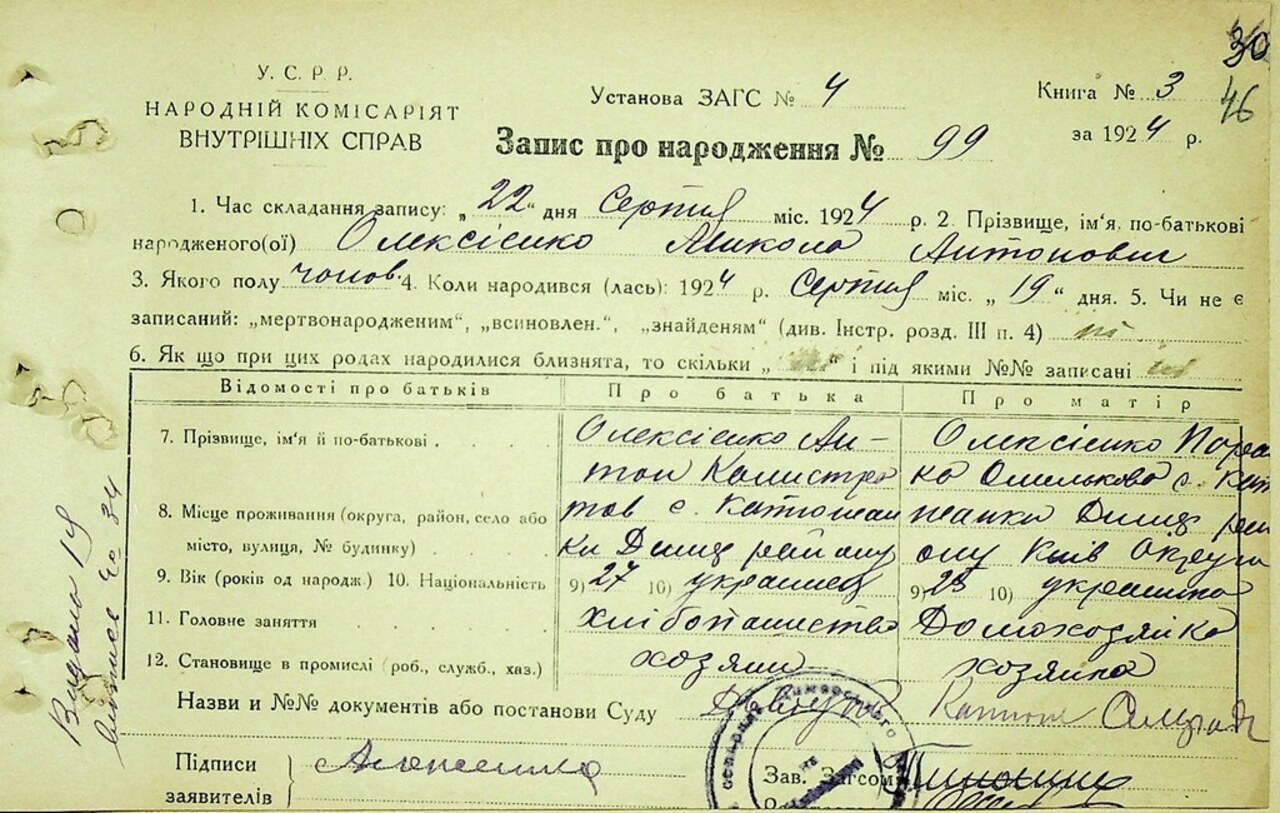 30
46
У. С. Р. Р.
НАРОДНІЙ КОМІСАРІЯТ
ВНУТРІШНІХ СПРАВ
Установа ЗАГС № 4
Книга № 3
за 1924 р.
Запис про народження № 99
1. Час складання запису: „22“ дня Серпня міс. 1924 р. 2. Прізвище, ім'я, по-батькові
народженого(ої) Олексієнко Микола Антонович
3. Якого полу чолов. 4. Коли народився (лась): 1924 р. Серпня міс. „19“ дня. 5. Чи не є
записаний: „мертвонародженим“, „всиновлен.“, „знайденям“ (див. Інстр. розд. III п. 4) ні
6. Як що при цих родах народилися близнята, то скільки „ “ і під якими №№ записані
Відомості про батьків Про батька Про матір
7. Прізвище, ім'я й по-батькові Олексієнко Ан- Олексієнко
тон Калистра ка Омелькова с.
8. Місце проживання (округа, район, село або тов с. Катюжан жанки Димер рай
місто, вулиця, № будинку) ки Димер району ону Київ Округи
9. Вік (років од народж.) 10. Національність 9) 27 10) украінец 9) 25 10) украінка
11. Головне заняття хліборобство Домохозяйка
12. Становище в промислі (роб., служб., хаз.) хозяин хозяйка
Назви и №№ документів або постанови Суду
Підписи
заявителів
Зав. Загсом
Видано 19